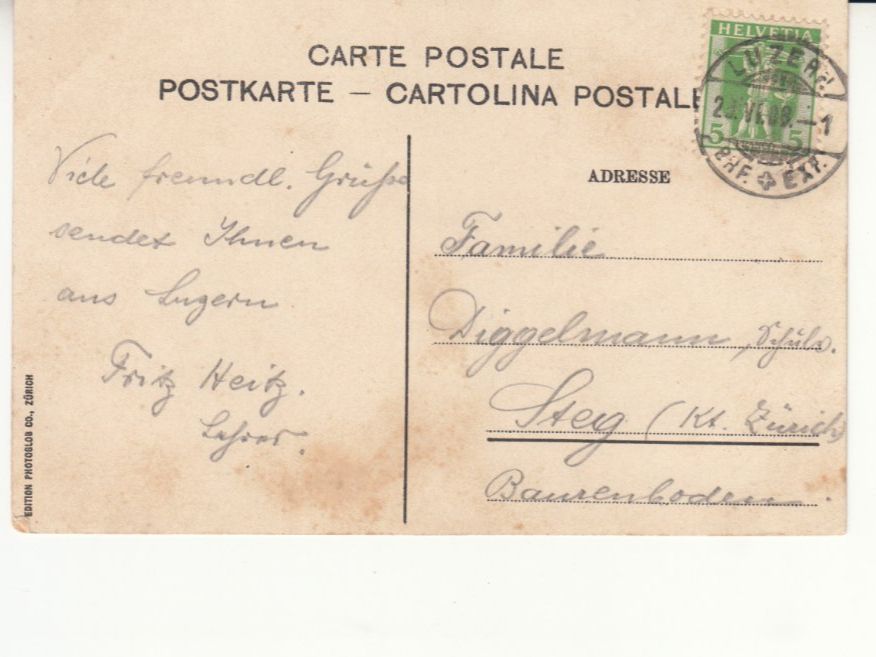 CARTE POSTALE
POSTKARTE — CARTOLINA POSTALE
HELVETIA
5 5
LUZERN
VI.09.—1
BHF. EXP.
Viele freundl. Grüsse
sendet Ihnen
aus Luzern
Fritz Heitz.
Lehrer.
ADRESSE
Familie
Diggelmann, Schulv.
Steg (Kt. Zürich)
Baurenboden.
EDITION PHOTOGLOB CO., ZÜRICH